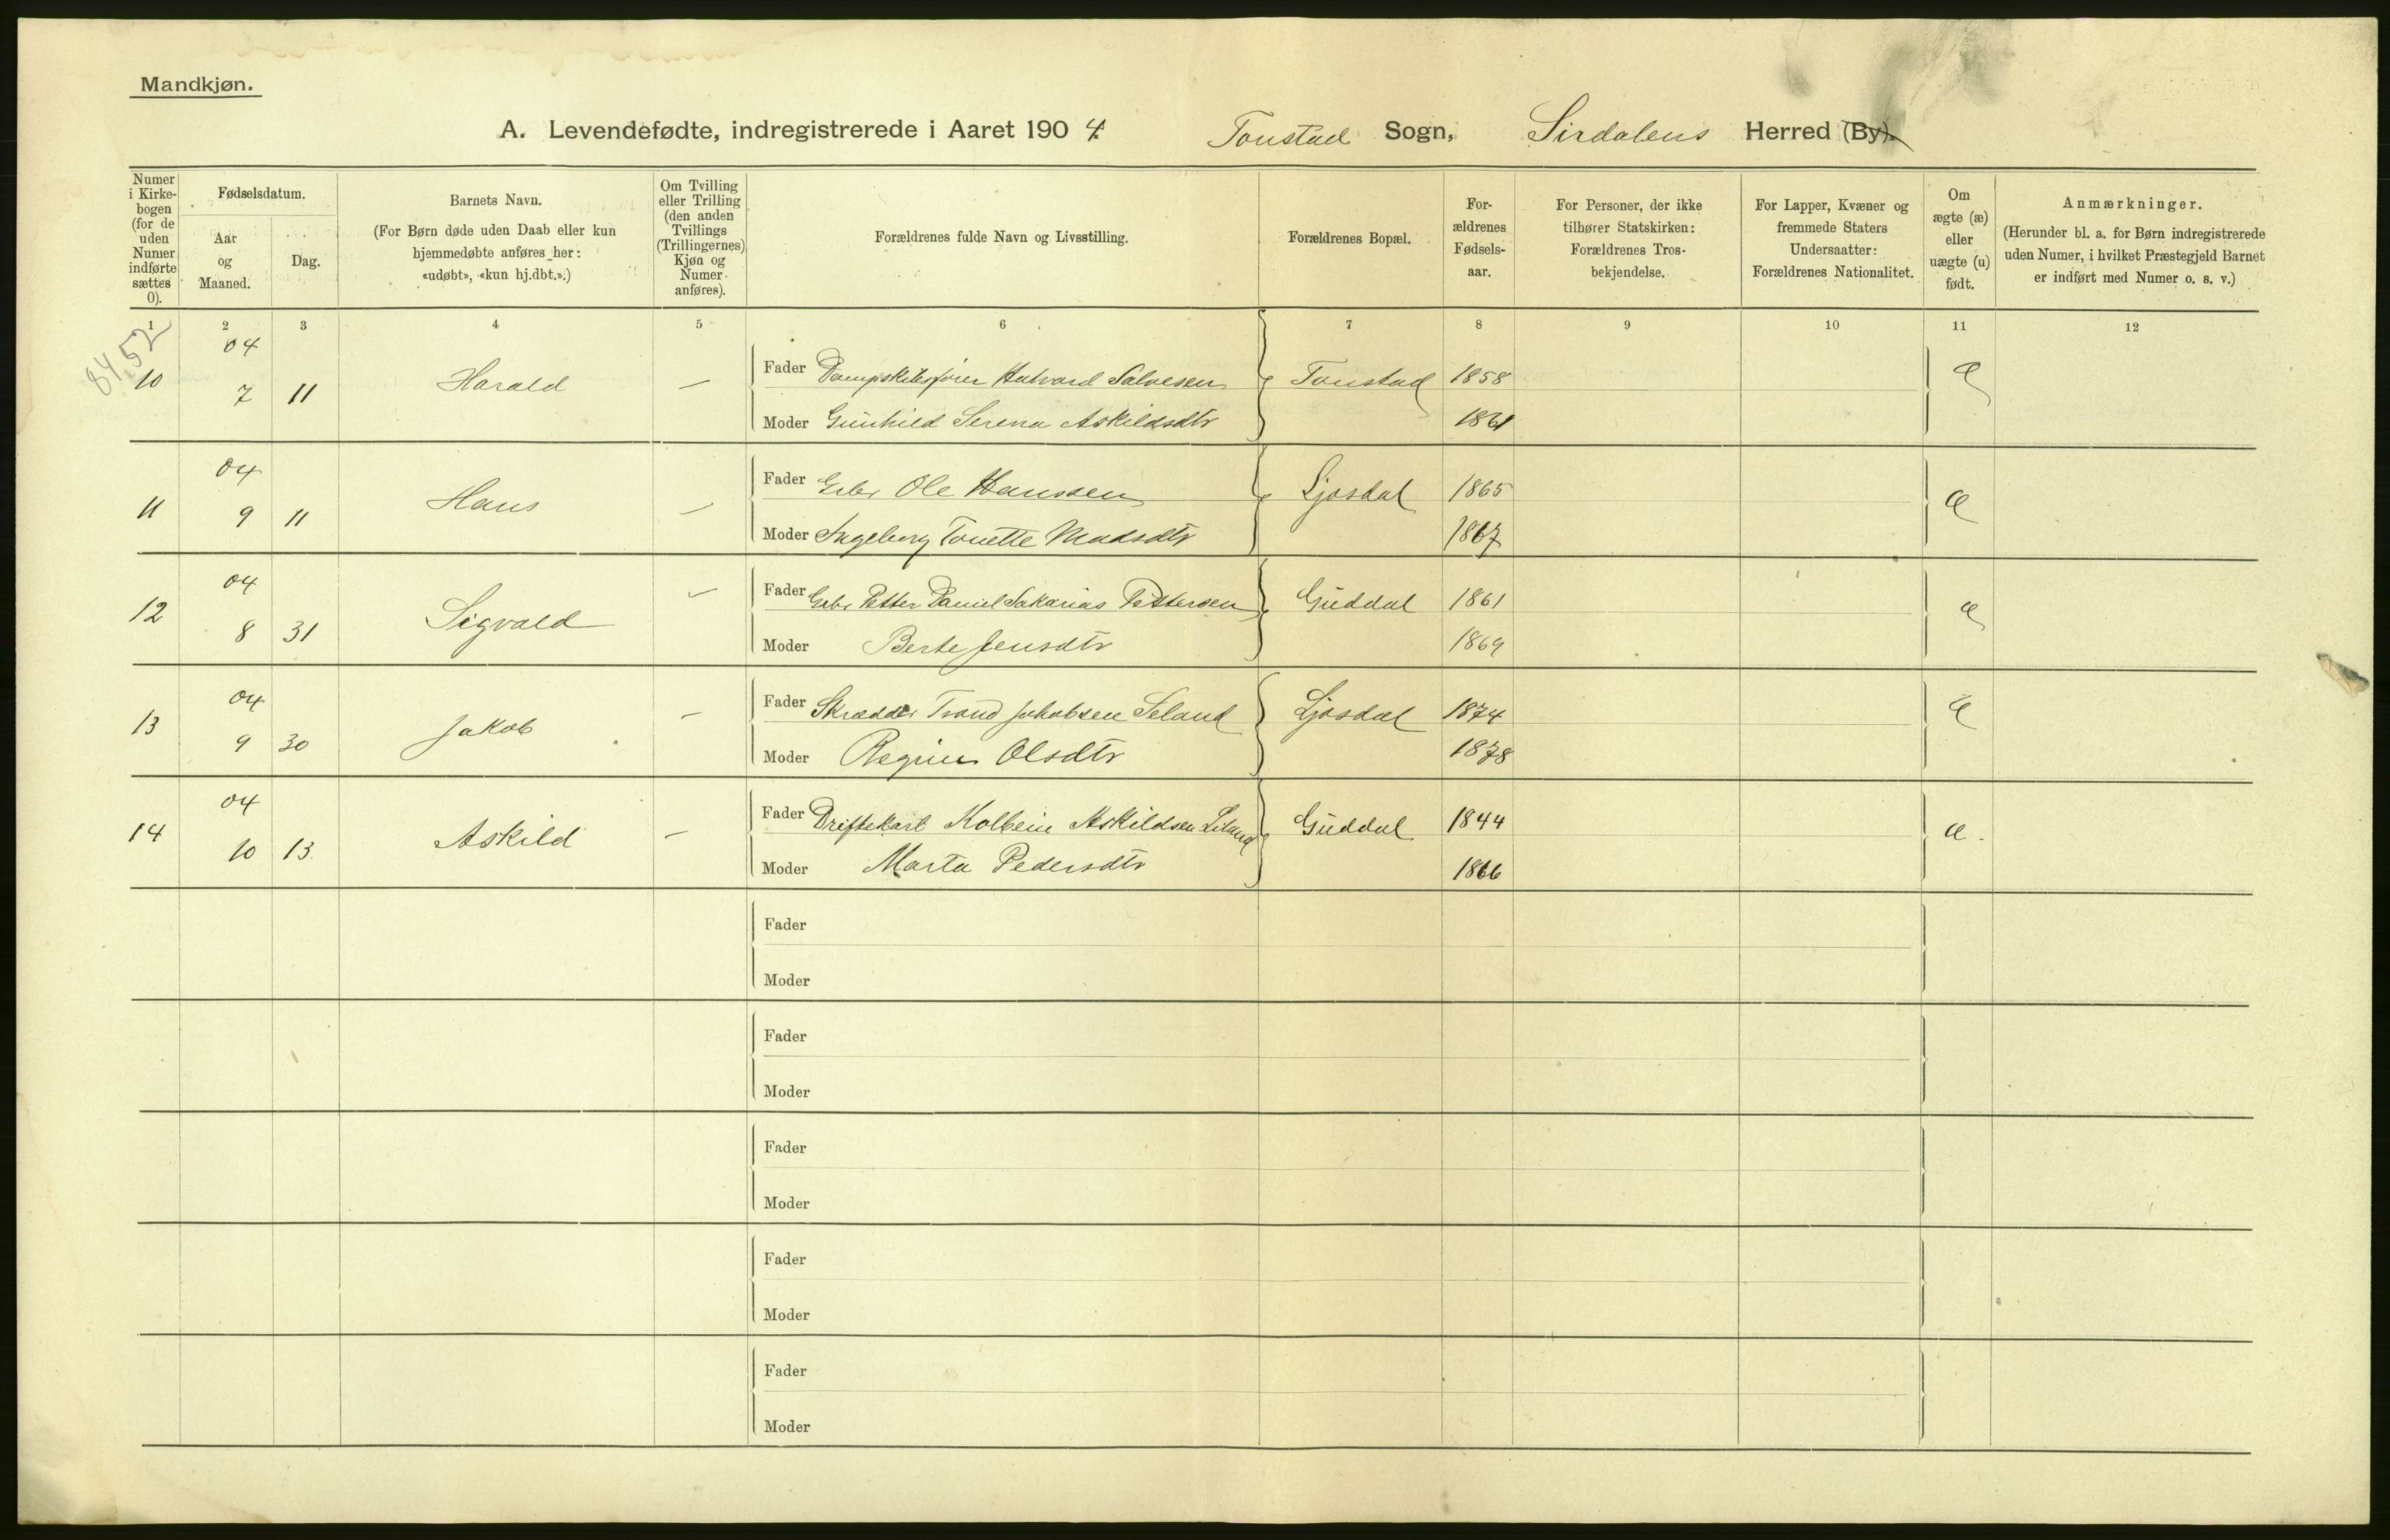 Mandkjøn.
A. Levendefødte, indregistrerede i Aaret 1904. Tonstad Sogn, Sirdalens Herred (By).
Numer i Kirkebogen (for de uden Numer indførte sættes 0).
Fødselsdatum.
Aar og Maaned.
Dag.
Barnets Navn.
(For Børn døde uden Daab eller kun hjemmedøbte anføres her: «udøbt», «kun hj.dbt.».)
Om Tvilling eller Trilling (den anden Tvillings (Trillingernes) Kjøn og Numer anføres).
Forældrenes fulde Navn og Livsstilling.
Forældrenes Bopæl.
Forældrenes Fødselsaar.
For Personer, der ikke tilhører Statskirken: Forældrenes Trosbekjendelse.
For Lapper, Kvæner og fremmede Staters Undersaatter: Forældrenes Nationalitet.
Om ægte (æ) eller uægte (u) født.
Anmærkninger.
(Herunder bl. a. for Børn indregistrerede uden Numer, i hvilket Præstegjeld Barnet er indført med Numer o. s. v.)
1 2 3 4 5 6 7 8 9 10 11 12
8452
10 04 7 11 Harald — Fader Dampskibsfører Halvard Salvesen Tonstad 1858 æ
Moder Gunhild Serena Askildsdtr 1861
11 04 9 11 Hans — Fader Gbr Ole Hanssen Ljosdal 1865 æ
Moder Ingeborg Tonette Madsdtr 1867
12 04 8 31 Sigvald — Fader Gbr Petter Daniel Sakarias Pettersen Guddal 1861 æ
Moder Berte Jensdtr 1869
13 04 9 30 Jakob — Fader Skrædder Trond Jakobsen Seland Ljosdal 1874 æ
Moder Regine Olsdtr 1878
14 04 10 13 Askild — Fader Driftekarl Kolbein Askildsen Liland Guddal 1844 æ.
Moder Marta Pedersdtr 1866
Fader
Moder
Fader
Moder
Fader
Moder
Fader
Moder
Fader
Moder